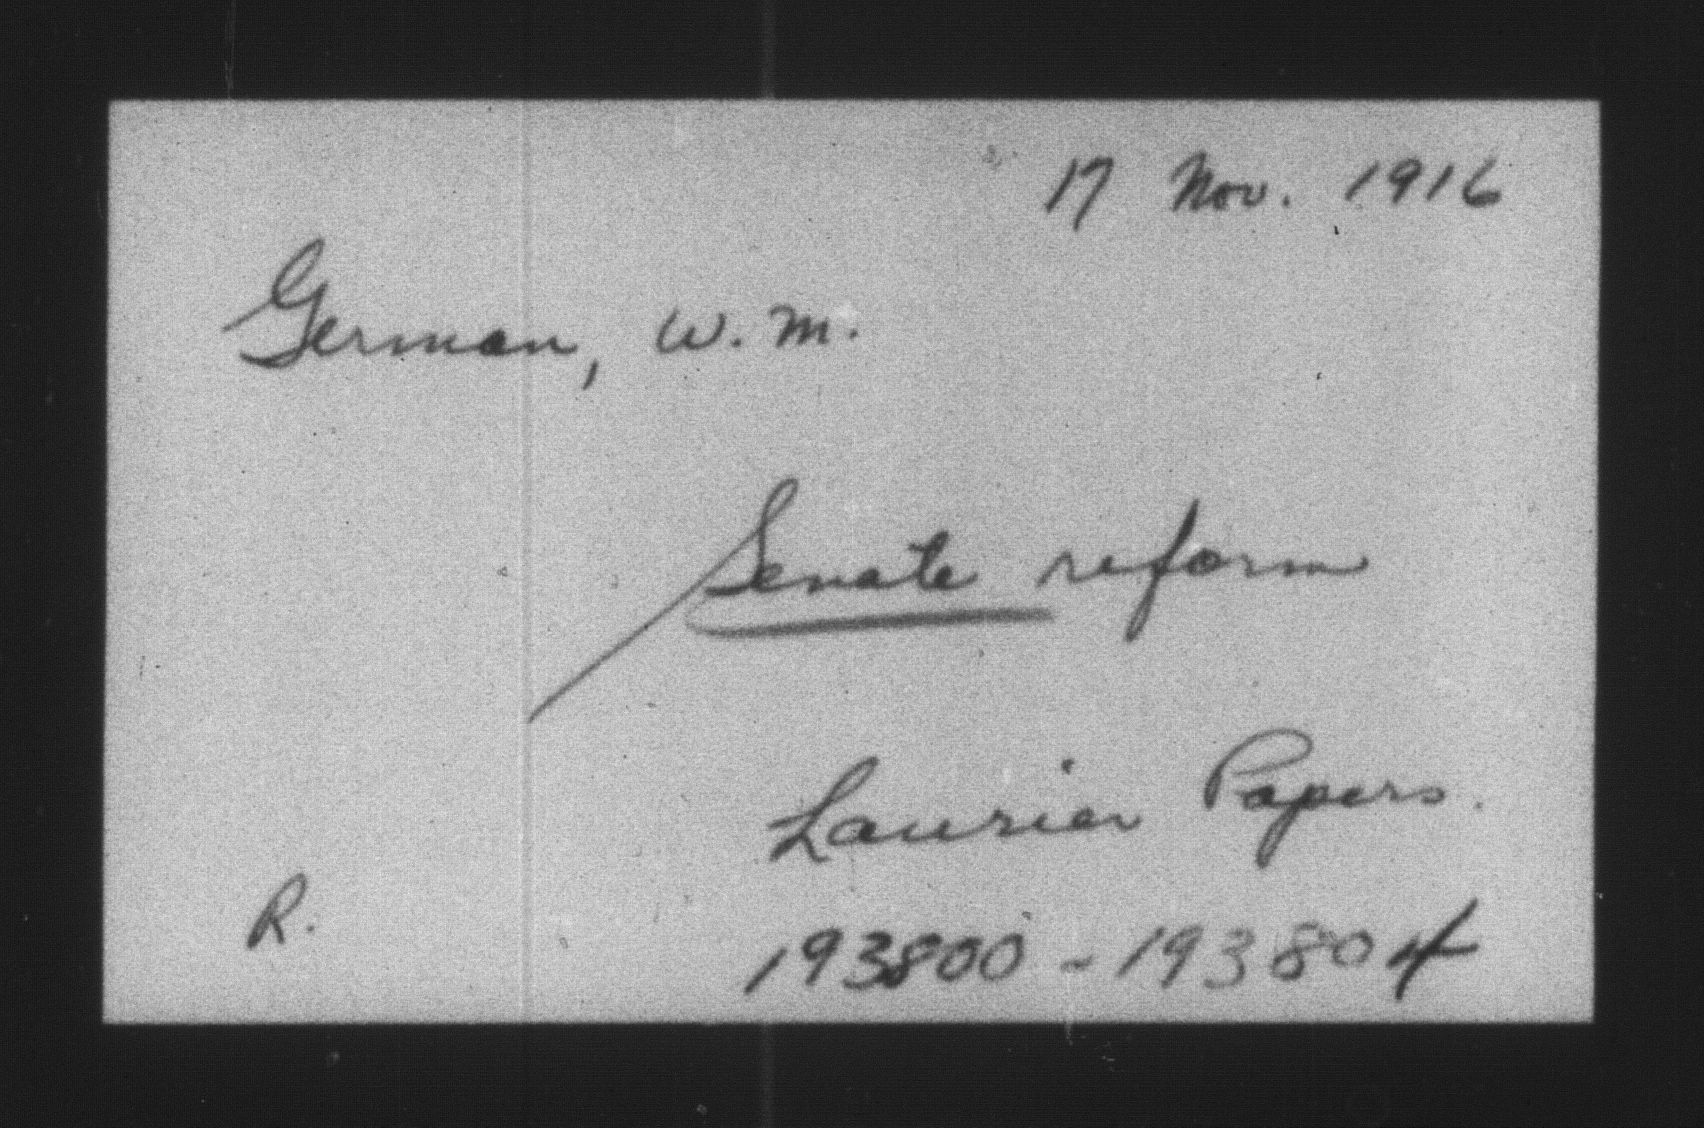 17 Nov. 1916
German, W. M.
Senate reform
Laurier Papers.
R.
193800 - 193804